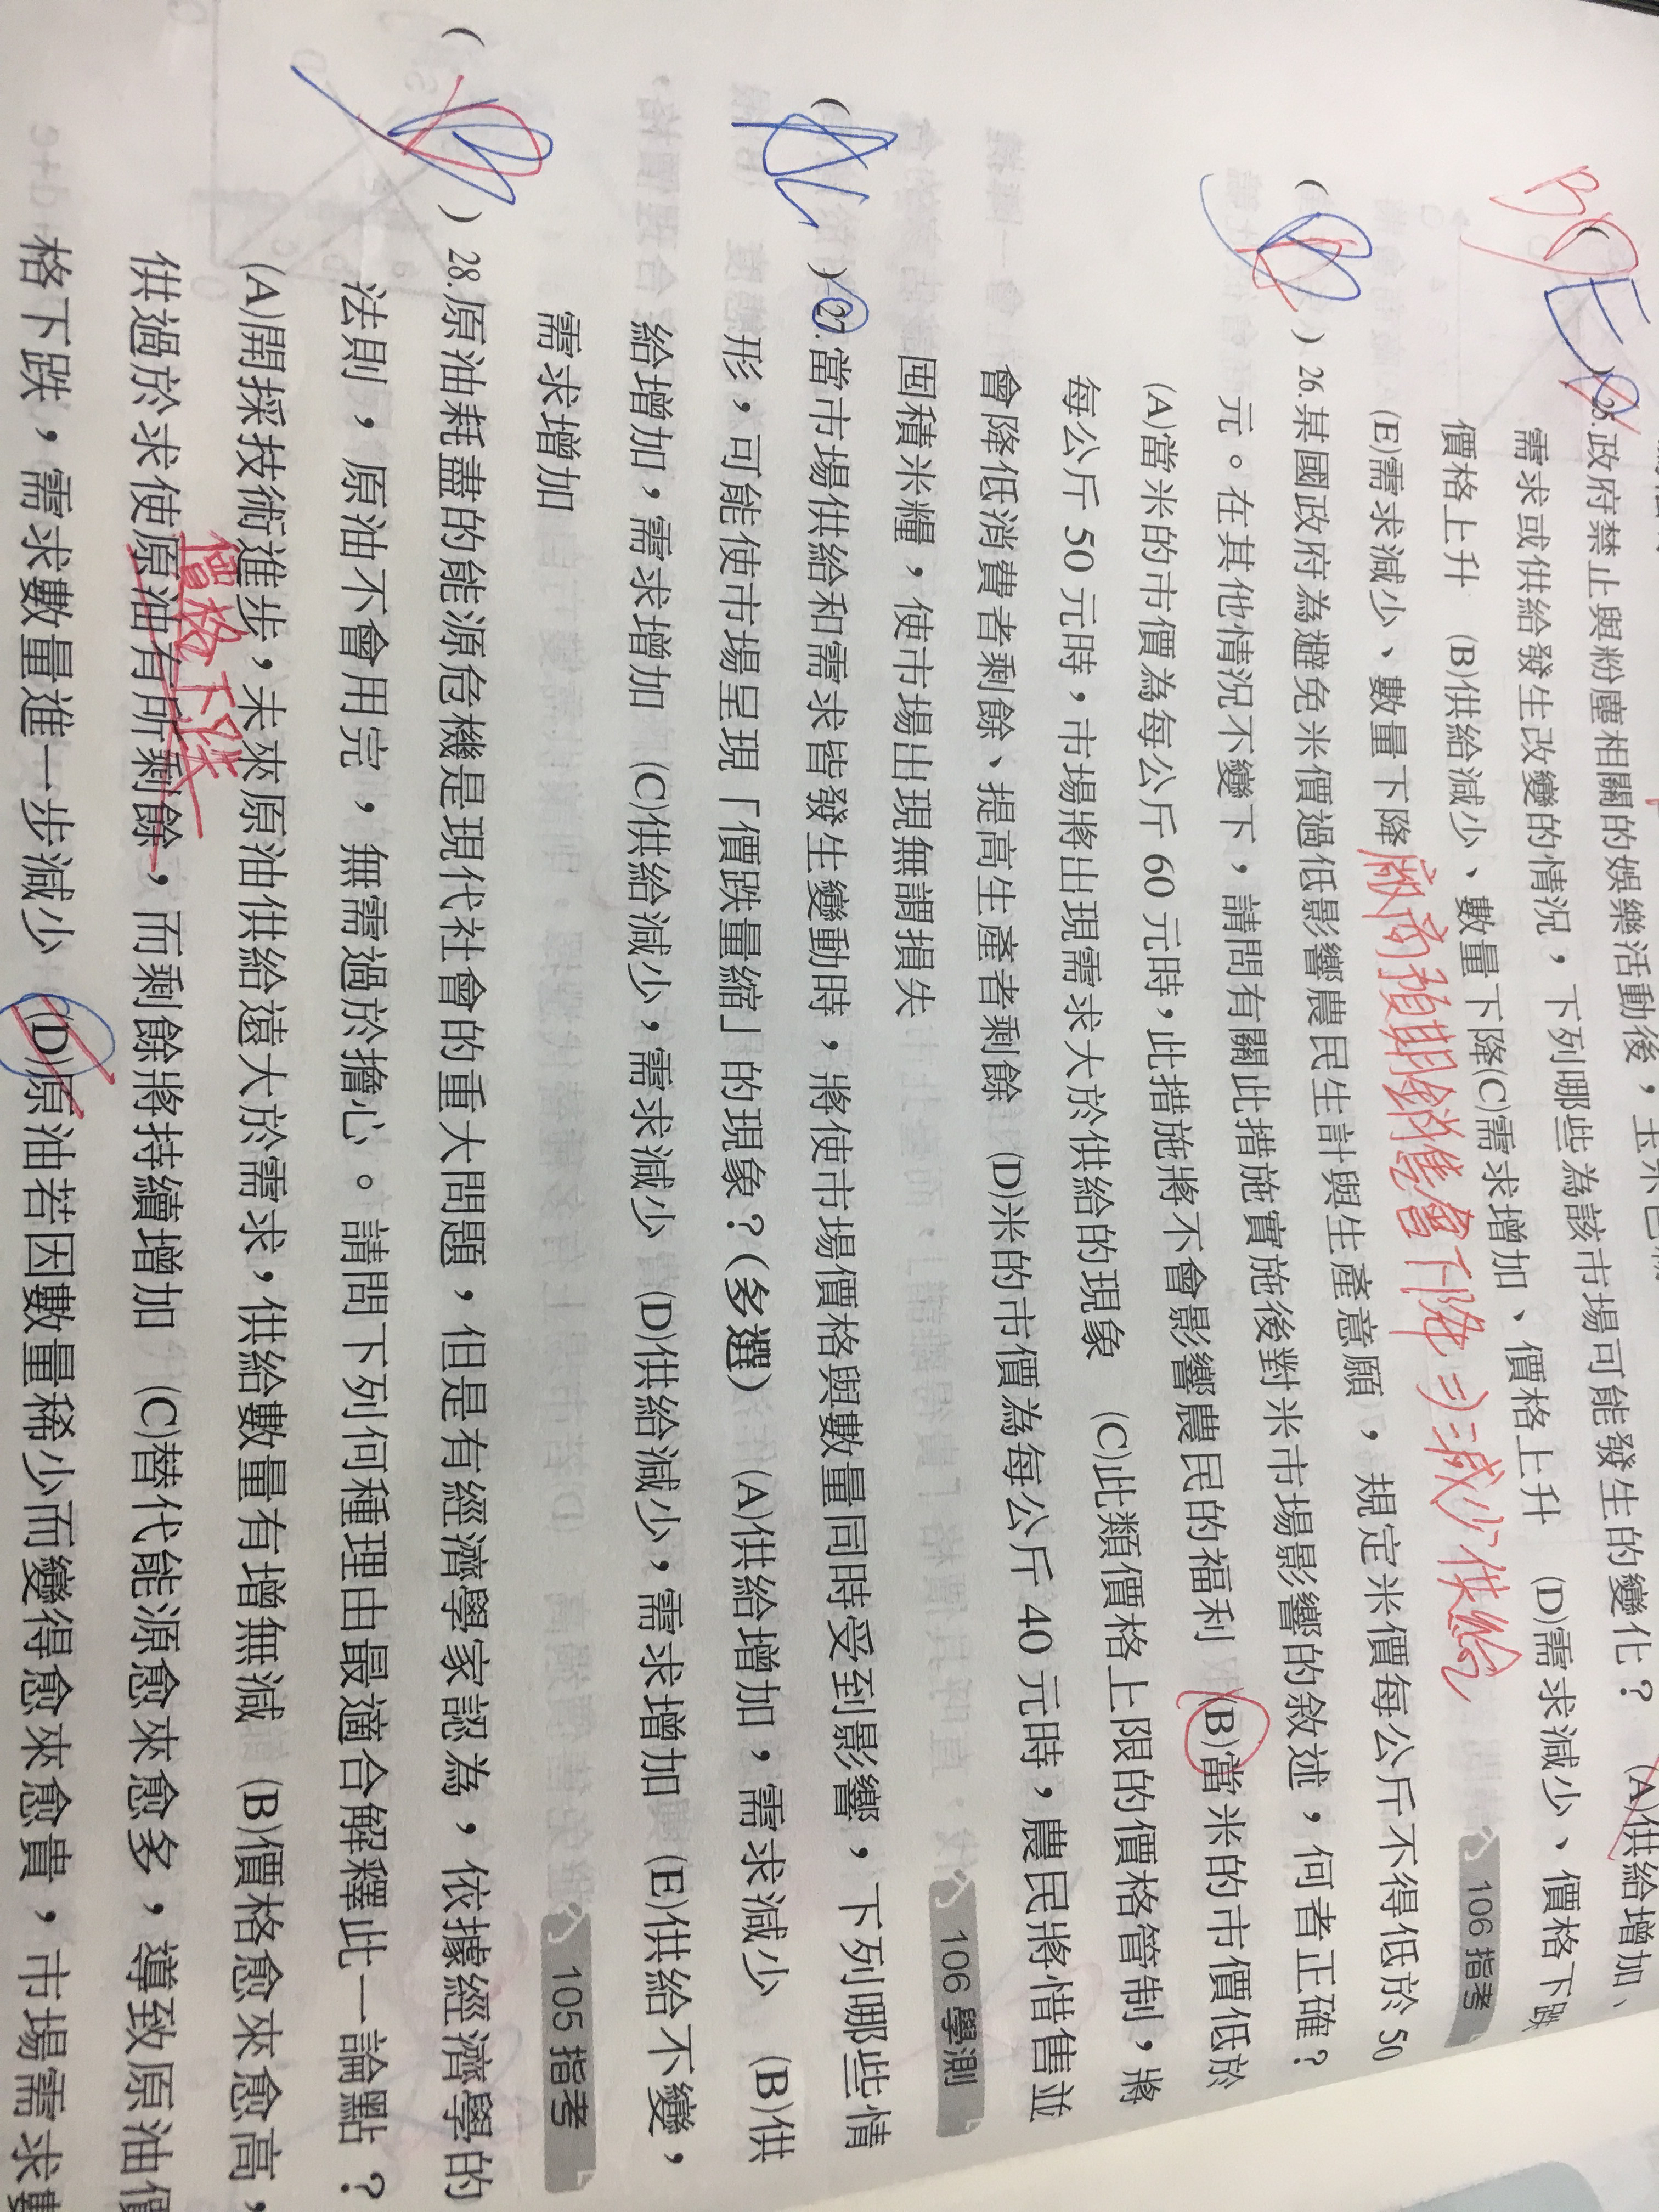 25.政府禁止與粉塵相關的娛樂活動後，玉米
需求或供給發生改變的情況，下列哪些為該市場可能發生的變化？ (A)供給增加、
價格上升 (B)供給減少、數量下降(C)需求增加、價格上升 (D)需求減少、價格下跌
(E)需求減少、數量下降 106 指考
廠商預期銷售會下降⇒減少供給
( )26.某國政府為避免米價過低影響農民生計與生產意願，規定米價每公斤不得低於 50
元。在其他情況不變下，請問有關此措施實施後對米市場影響的敘述，何者正確？
(A)當米的市價為每公斤 60 元時，此措施將不會影響農民的福利 (B)當米的市價低於
每公斤 50 元時，市場將出現需求大於供給的現象 (C)此類價格上限的價格管制，將
會降低消費者剩餘、提高生產者剩餘 (D)米的市價為每公斤 40 元時，農民將惜售並
囤積米糧，使市場出現無謂損失 106 學測
( )27.當市場供給和需求皆發生變動時，將使市場價格與數量同時受到影響，下列哪些情
形，可能使市場呈現「價跌量縮」的現象？(多選) (A)供給增加，需求減少 (B)供
給增加，需求增加 (C)供給減少，需求減少 (D)供給減少，需求增加 (E)供給不變，
需求增加 105 指考
( )28.原油耗盡的能源危機是現代社會的重大問題，但是有經濟學家認為，依據經濟學的
法則，原油不會用完，無需過於擔心。請問下列何種理由最適合解釋此一論點？
(A)開採技術進步，未來原油供給遠大於需求，供給數量有增無減 (B)價格愈來愈高，
價格下跌
供過於求使原油有所剩餘，而剩餘將持續增加 (C)替代能源愈來愈多，導致原油價
格下跌，需求數量進一步減少 (D)原油若因數量稀少而變得愈來愈貴，市場需求數